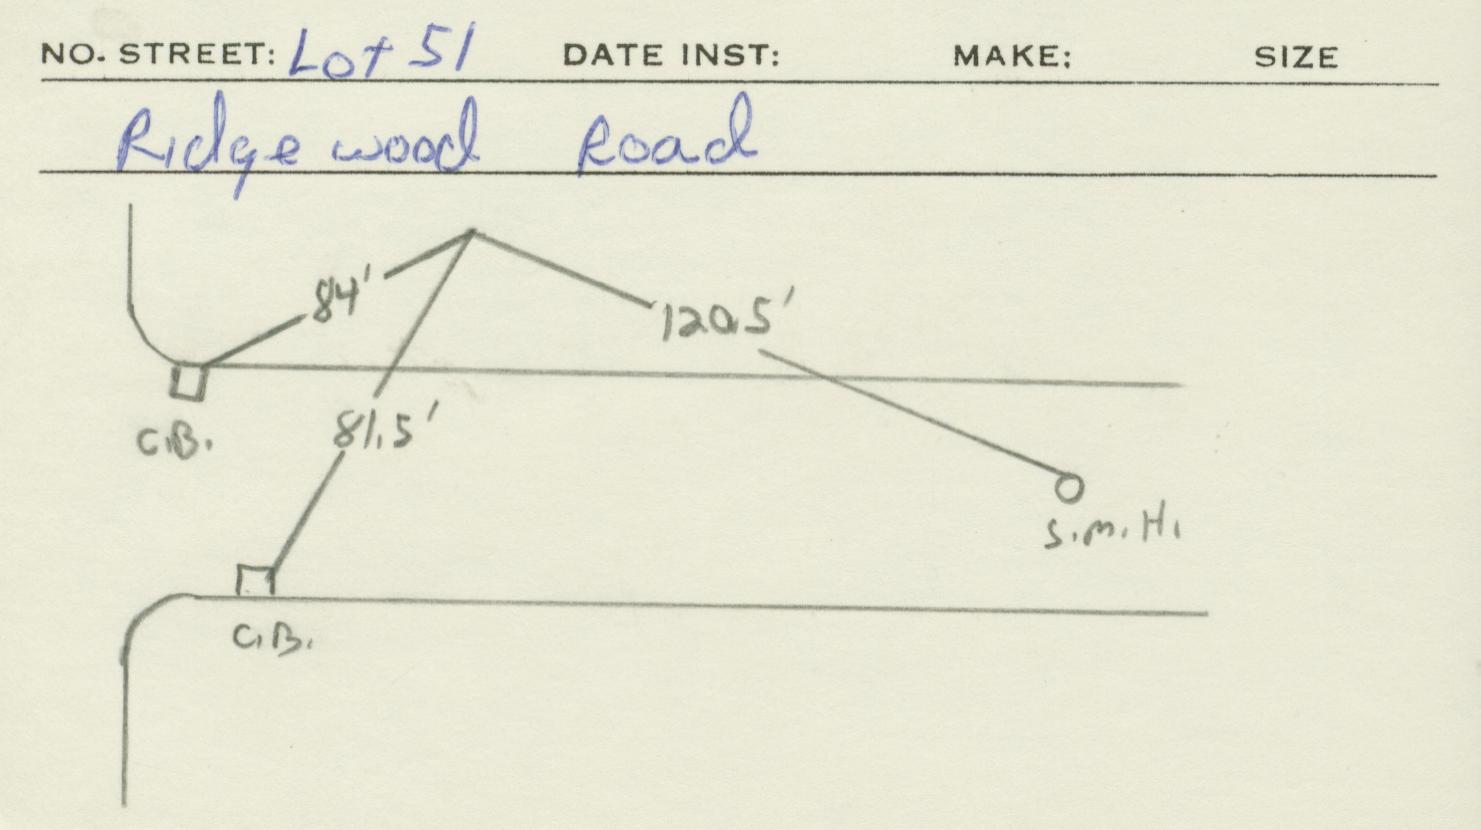 NO. STREET: Lot 51 DATE INST: MAKE: SIZE
Ridgewood Road
84'
120.5'
C.B.
81.5'
S.M.H.
C.B.